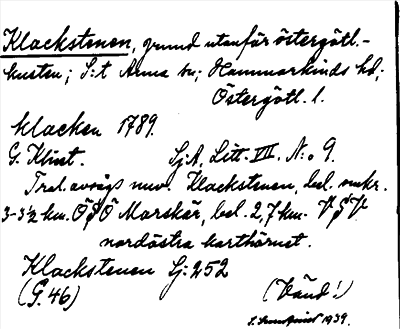 Klackstenen, grund utanför östergötl.-
kusten; S:t Anna sn; Hammarkinds hd;
Östergötl. l.
klacken 1789.
G. Klint. Sj.A, Litt. VII. N:o 9.
Trol. avsågs nuv. Klackstenen, bel. omkr.
3-3½ km. ÖSÖ Marskär, bel. 2,7 km. VSV
nordöstra karthörnet.
Klackstenen Sj: 252
(G. 46) (Vänd!)
1939.